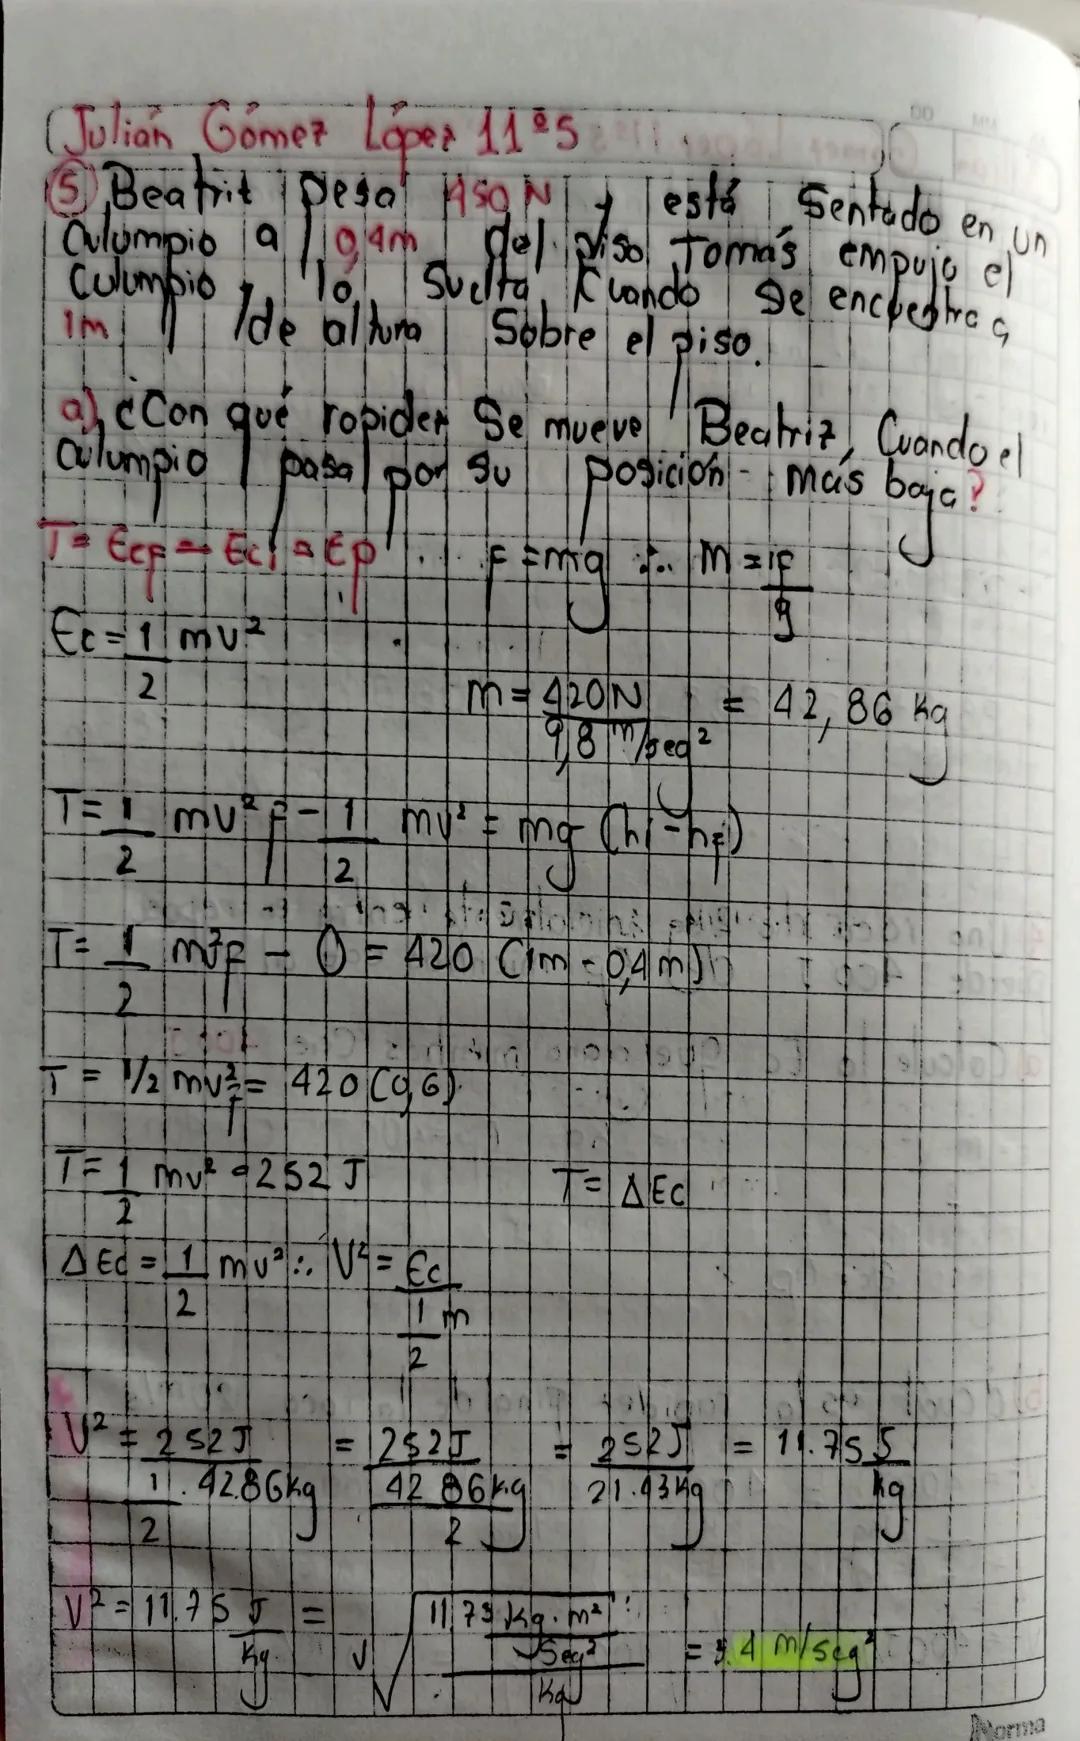 Julián Gómez López 11°5
⑤ Beatriz pesa 450 N y está sentado en un
Columpio a 0,4m del piso Tomás empuja el
Columpio y lo suelta cuando se encuentra a
1m de altura sobre el piso.
a) ¿Con qué rapidez se mueve Beatriz, Cuando el
Columpio pasa por su posición más baja?
T = Ecf - Eci = Ep F = mg ∴ m = F/g
Ec = 1/2 mv²
m = 420N / 9,8 m/seg² = 42,86 kg
T = 1/2 mv²f - 1/2 mv² = mg (hi - hf)
T = 1/2 m²f - 0 = 420 (1m - 0,4m)
T = 1/2 mv²f = 420 (0,6)
T = 1/2 mv² = 252 J T = ΔEc
ΔEc = 1/2 mv² ∴ V² = Ec / 1/2 m
V² = 252J / 1/2 . 42.86kg = 252J / 42 86kg/2 = 252J / 21.43kg = 11.75 J/kg
V² = 11.75 J/kg = √ 11,75 kg.m²/seg² / kg = 3.4 m/seg²
Norma